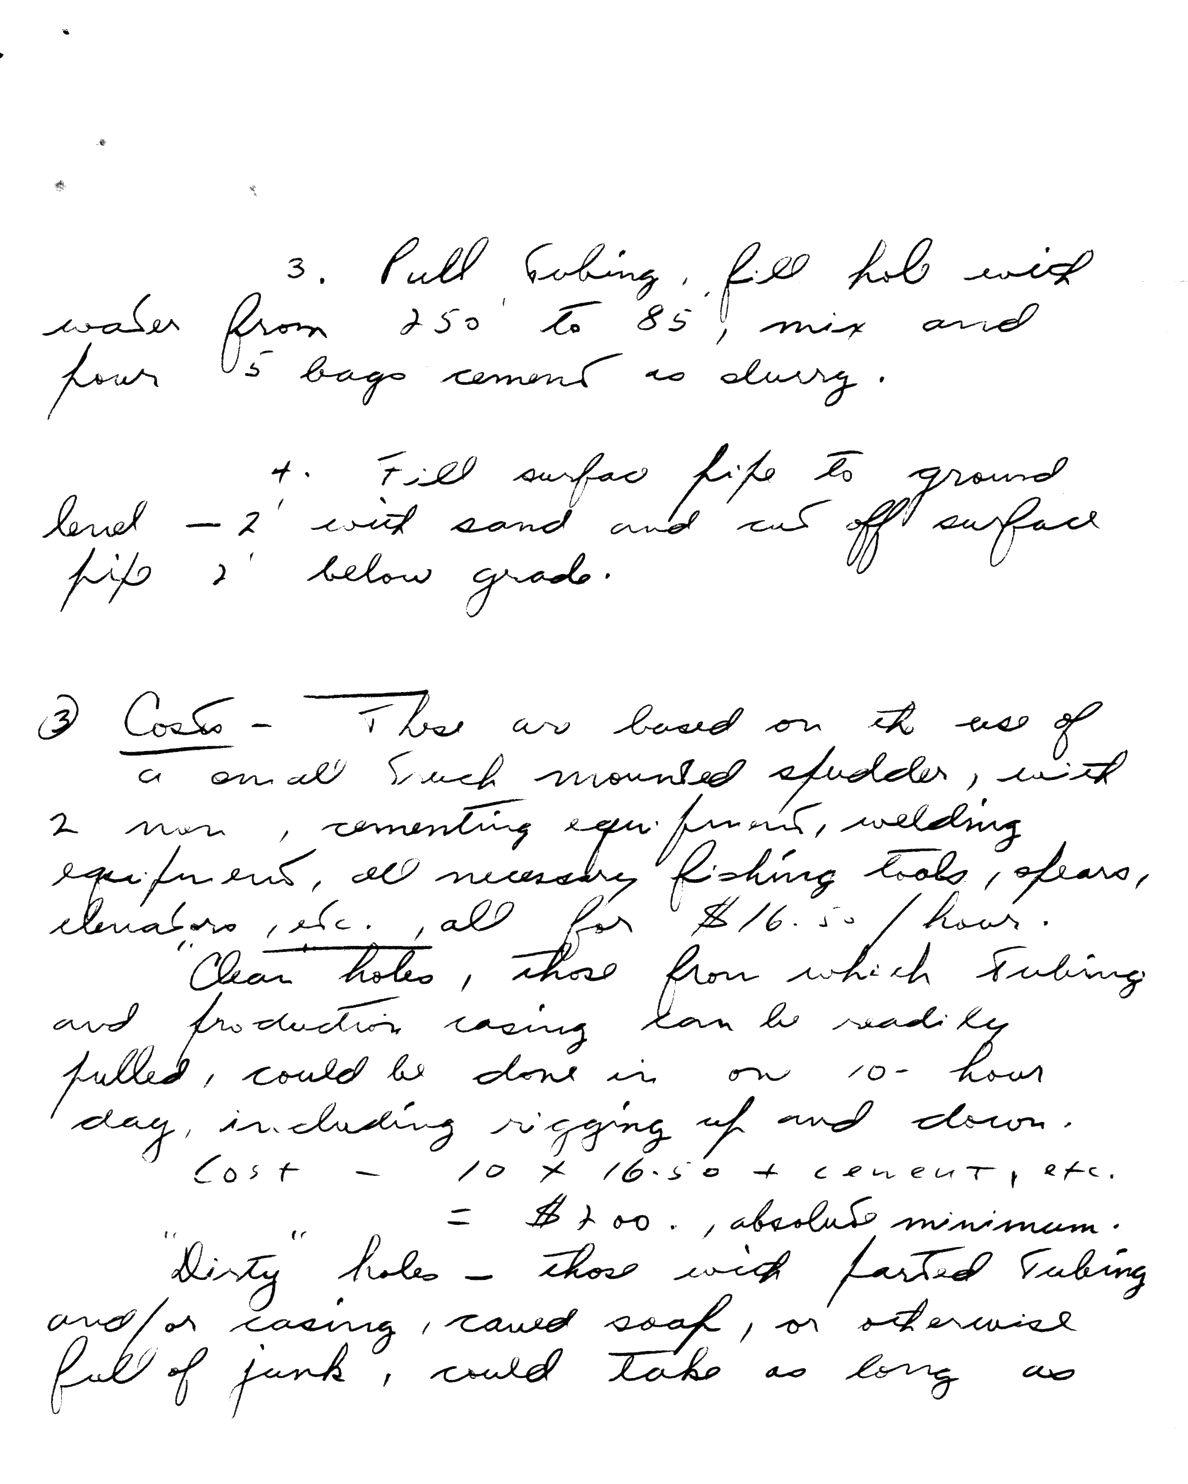 3. Pull Tubing, fill hole with
water from 250' to 85', mix and
pour 5 bags cement as slurry.
4. Fill surface pipe to ground
level - 2' with sand and cut off surface
pipe 2' below grade.
③ Costs - These are based on the use of
a small Truck mounted spudder, with
2 men, cementing equipment, welding
equipment, all necessary fishing tools, spears,
elevators, etc., all for $16.50/hour.
"Clean holes, those from which Tubing
and production casing can be readily
pulled, could be done in on 10-hour
day, including rigging up and down.
Cost - 10 x 16.50 + cement, etc.
= $200., absolute minimum.
"Dirty" holes - those with parted Tubing
and/or casing, caved soap, or otherwise
full of junk, could take as long as